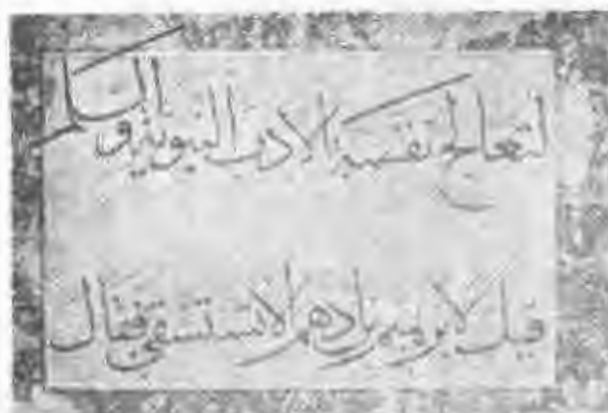 لتعالج نفسه الادب النبوية والسلم
قيل لابرهيم بن ادهم لا تستسقي فقال